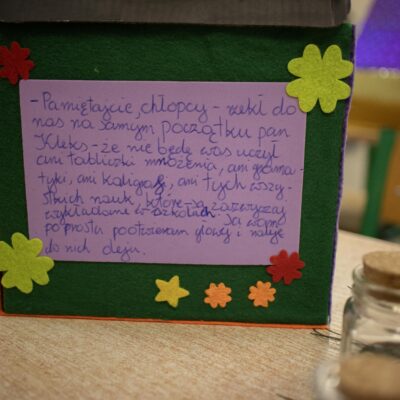 - Pamiętajcie, chłopcy - rzekł do
nas na samym początku pan
Kleks - że nie będę was uczył
ani tabliczki mnożenia, ani grama-
tyki, ani kaligrafii, ani tych wszy-
stkich nauk, które są zazwyczaj
wykładane w szkołach. Ja wam
po prostu pootwieram głowy i naleję
do nich oleju.